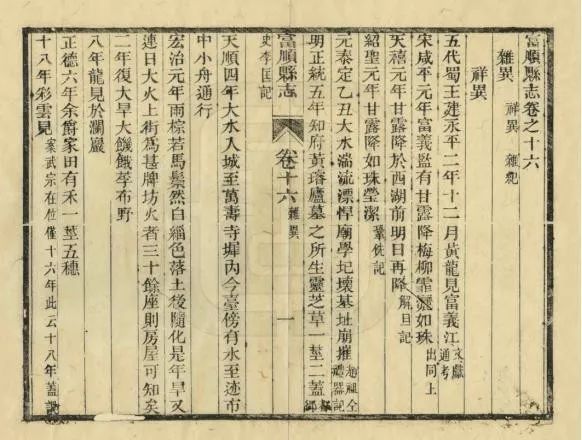 富順縣志卷之十六
雜異 祥異 雜紀
祥異
五代蜀王建永平二年十二月黃龍見富義江文獻通考
宋咸平元年富義監有甘露降梅柳霏灑如珠出同上
天禧元年甘露降於西湖前明日再降解目記
紹聖元年甘露降如珠瑩潔鞏侁記
元泰定乙丑大水湍流漂悍廟學圮壞基址崩摧趙祖全禮器記
明正統五年知府黃璿廬墓之所生靈芝草一莖二蓋
史李匡記
富順縣志 卷十六 雜異 一
天順四年大水入城至萬壽寺墀內今臺傍有水至迹市
中小舟通行
宏治元年雨棕若馬鬃然白緇色落土後隨化是年旱又
連日大火上街爲甚牌坊火者三十餘座則房屋可知矣
二年復大旱大饑餓莩布野
八年龍見於瀾巖
正德六年余爵家田有禾一莖五穗
十八年彩雲見案武宗在位僅十六年此云十八年蓋誤